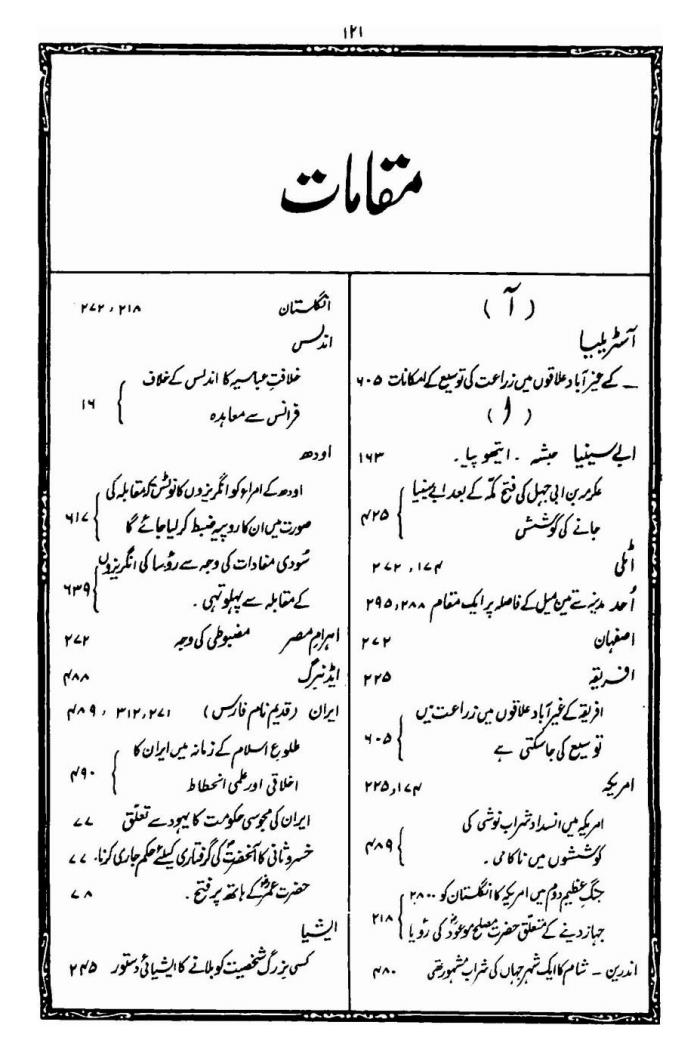 ۱۲۱
مقامات
( آ )
آسٹریلیا
ـ کے غیر آباد علاقوں میں زراعت کی توسیع کے امکانات ۶۰۵
( ا )
ابی سینیا حبشہ ۔ ایتھوپیا ۔ ۱۶۳
عکرمہ بن ابی جہل کی فتح مکّہ کے بعد ابی سینیا
جانے کی کوشش ۴۲۵
اٹلی ۱۷۴، ۲۷۲
اُحد مدینہ سے تین میل کے فاصلہ پر ایک مقام ۲۸۸، ۲۹۵
اصفہان ۲۷۲
افریقہ ۲۲۵
افریقہ کے غیر آباد علاقوں میں زراعت میں
توسیع کی جاسکتی ہے ۶۰۵
امریکہ ۱۷۴، ۲۲۵
امریکہ میں انسداد شراب نوشی کی
کوششوں میں ناکامی ۔ ۴۸۹
جنگِ عظیم دوم میں امریکہ کا انگلستان کو ۲۸۰۰
جہاز دینے کے متعلق حضرت مصلح موعودؓ کی رؤیا ۲۱۸
اندرین ـ شام کا ایک شہر جہاں کی شراب مشہور تھی ۴۸۰
انگلستان ۲۱۸، ۲۷۲
اندلس
خلافتِ عباسیہ کا اندلس کے خلاف
فرانس سے معاہدہ ۱۶
اودھ
اودھ کے امراء کو انگریزوں کا نوٹس کہ مقابلہ کی
صورت میں ان کا روپیہ ضبط کر لیا جائے گا ۶۱۷
سُودی مفادات کی وجہ سے رؤسا کی انگریزوں
کے مقابلہ سے پہلوتہی ۔ ۶۳۹
اہرامِ مصر مضبوطی کی وجہ ۲۷۲
ایڈنبرگ ۴۸۸
ایران (قدیم نام فارس) ۲۷۱، ۳۱۲، ۴۸۹
طلوعِ اسلام کے زمانہ میں ایران کا
اخلاقی اور علمی انحطاط ۴۹۰
ایران کی مجوسی حکومت کا یہود سے تعلّق ۷۷
خسرو ثانی کا آنحضرتؐ کی گرفتاری کیلئے حکم جاری کرنا۔ ۷۷
حضرت عمرؓ کے ہاتھ پر فتح ۔ ۷۸
ایشیا
کسی بزرگ شخصیت کو بلانے کا ایشیائی دستور ۲۴۵